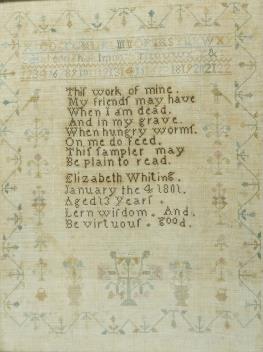 This work of mine.
My friends may have
When I am dead.
And in my grave.
When hungry worms.
On me do feed.
This sampler may
Be plain to read.
Elizabeth Whiting.
January the 4 1801.
Aged 13 Years.
Lern wisdom. And.
Be virtuous. good.